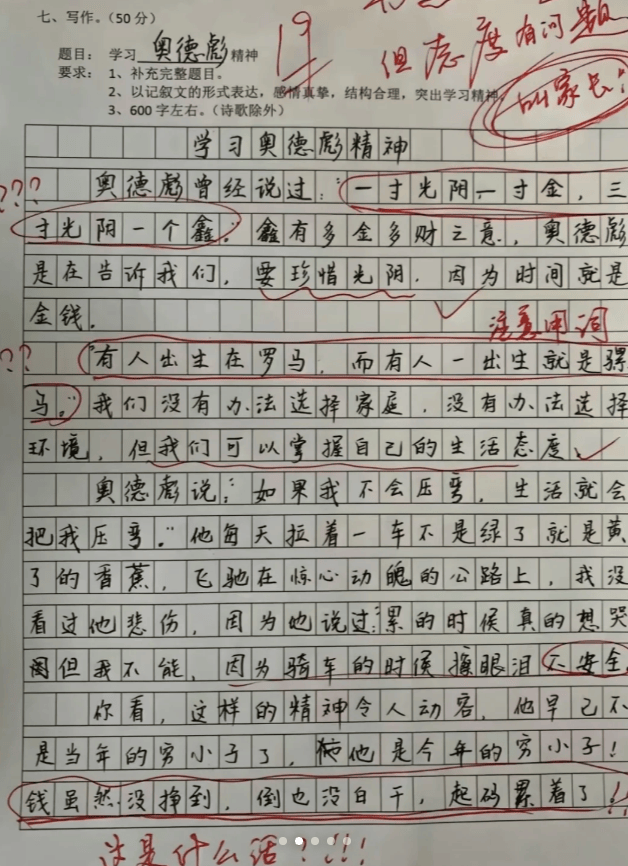 七、写作。（50分）
19
但态度有问题
叫家长！
题目：学习 奥德彪 精神
要求：1、补充完整题目。
2、以记叙文的形式表达，感情真挚，结构合理，突出学习精神。
3、600字左右。（诗歌除外）
学习奥德彪精神
???
奥德彪曾经说过：“一寸光阴一寸金，三
寸光阴一个鑫。”鑫有多金多财之意，奥德彪
是在告诉我们，要珍惜光阴，因为时间就是
金钱。
注意用词
??
“有人出生在罗马，而有人一出生就是骡
马。”我们没有办法选择家庭，没有办法选择
环境，但我们可以掌握自己的生活态度。
奥德彪说：“如果我不会压弯，生活就会
把我压弯。”他每天拉着一车不是绿了就是黄
了的香蕉，飞驰在惊心动魄的公路上，我没
看过他悲伤，因为他说过：累的时候真的想哭
但我不能，因为骑车的时候擦眼泪不安全。
你看，这样的精神令人动容，他早已不
是当年的穷小子了，他是今年的穷小子！
钱虽然没挣到，倒也没白干，起码累着了！
这是什么话？!!!